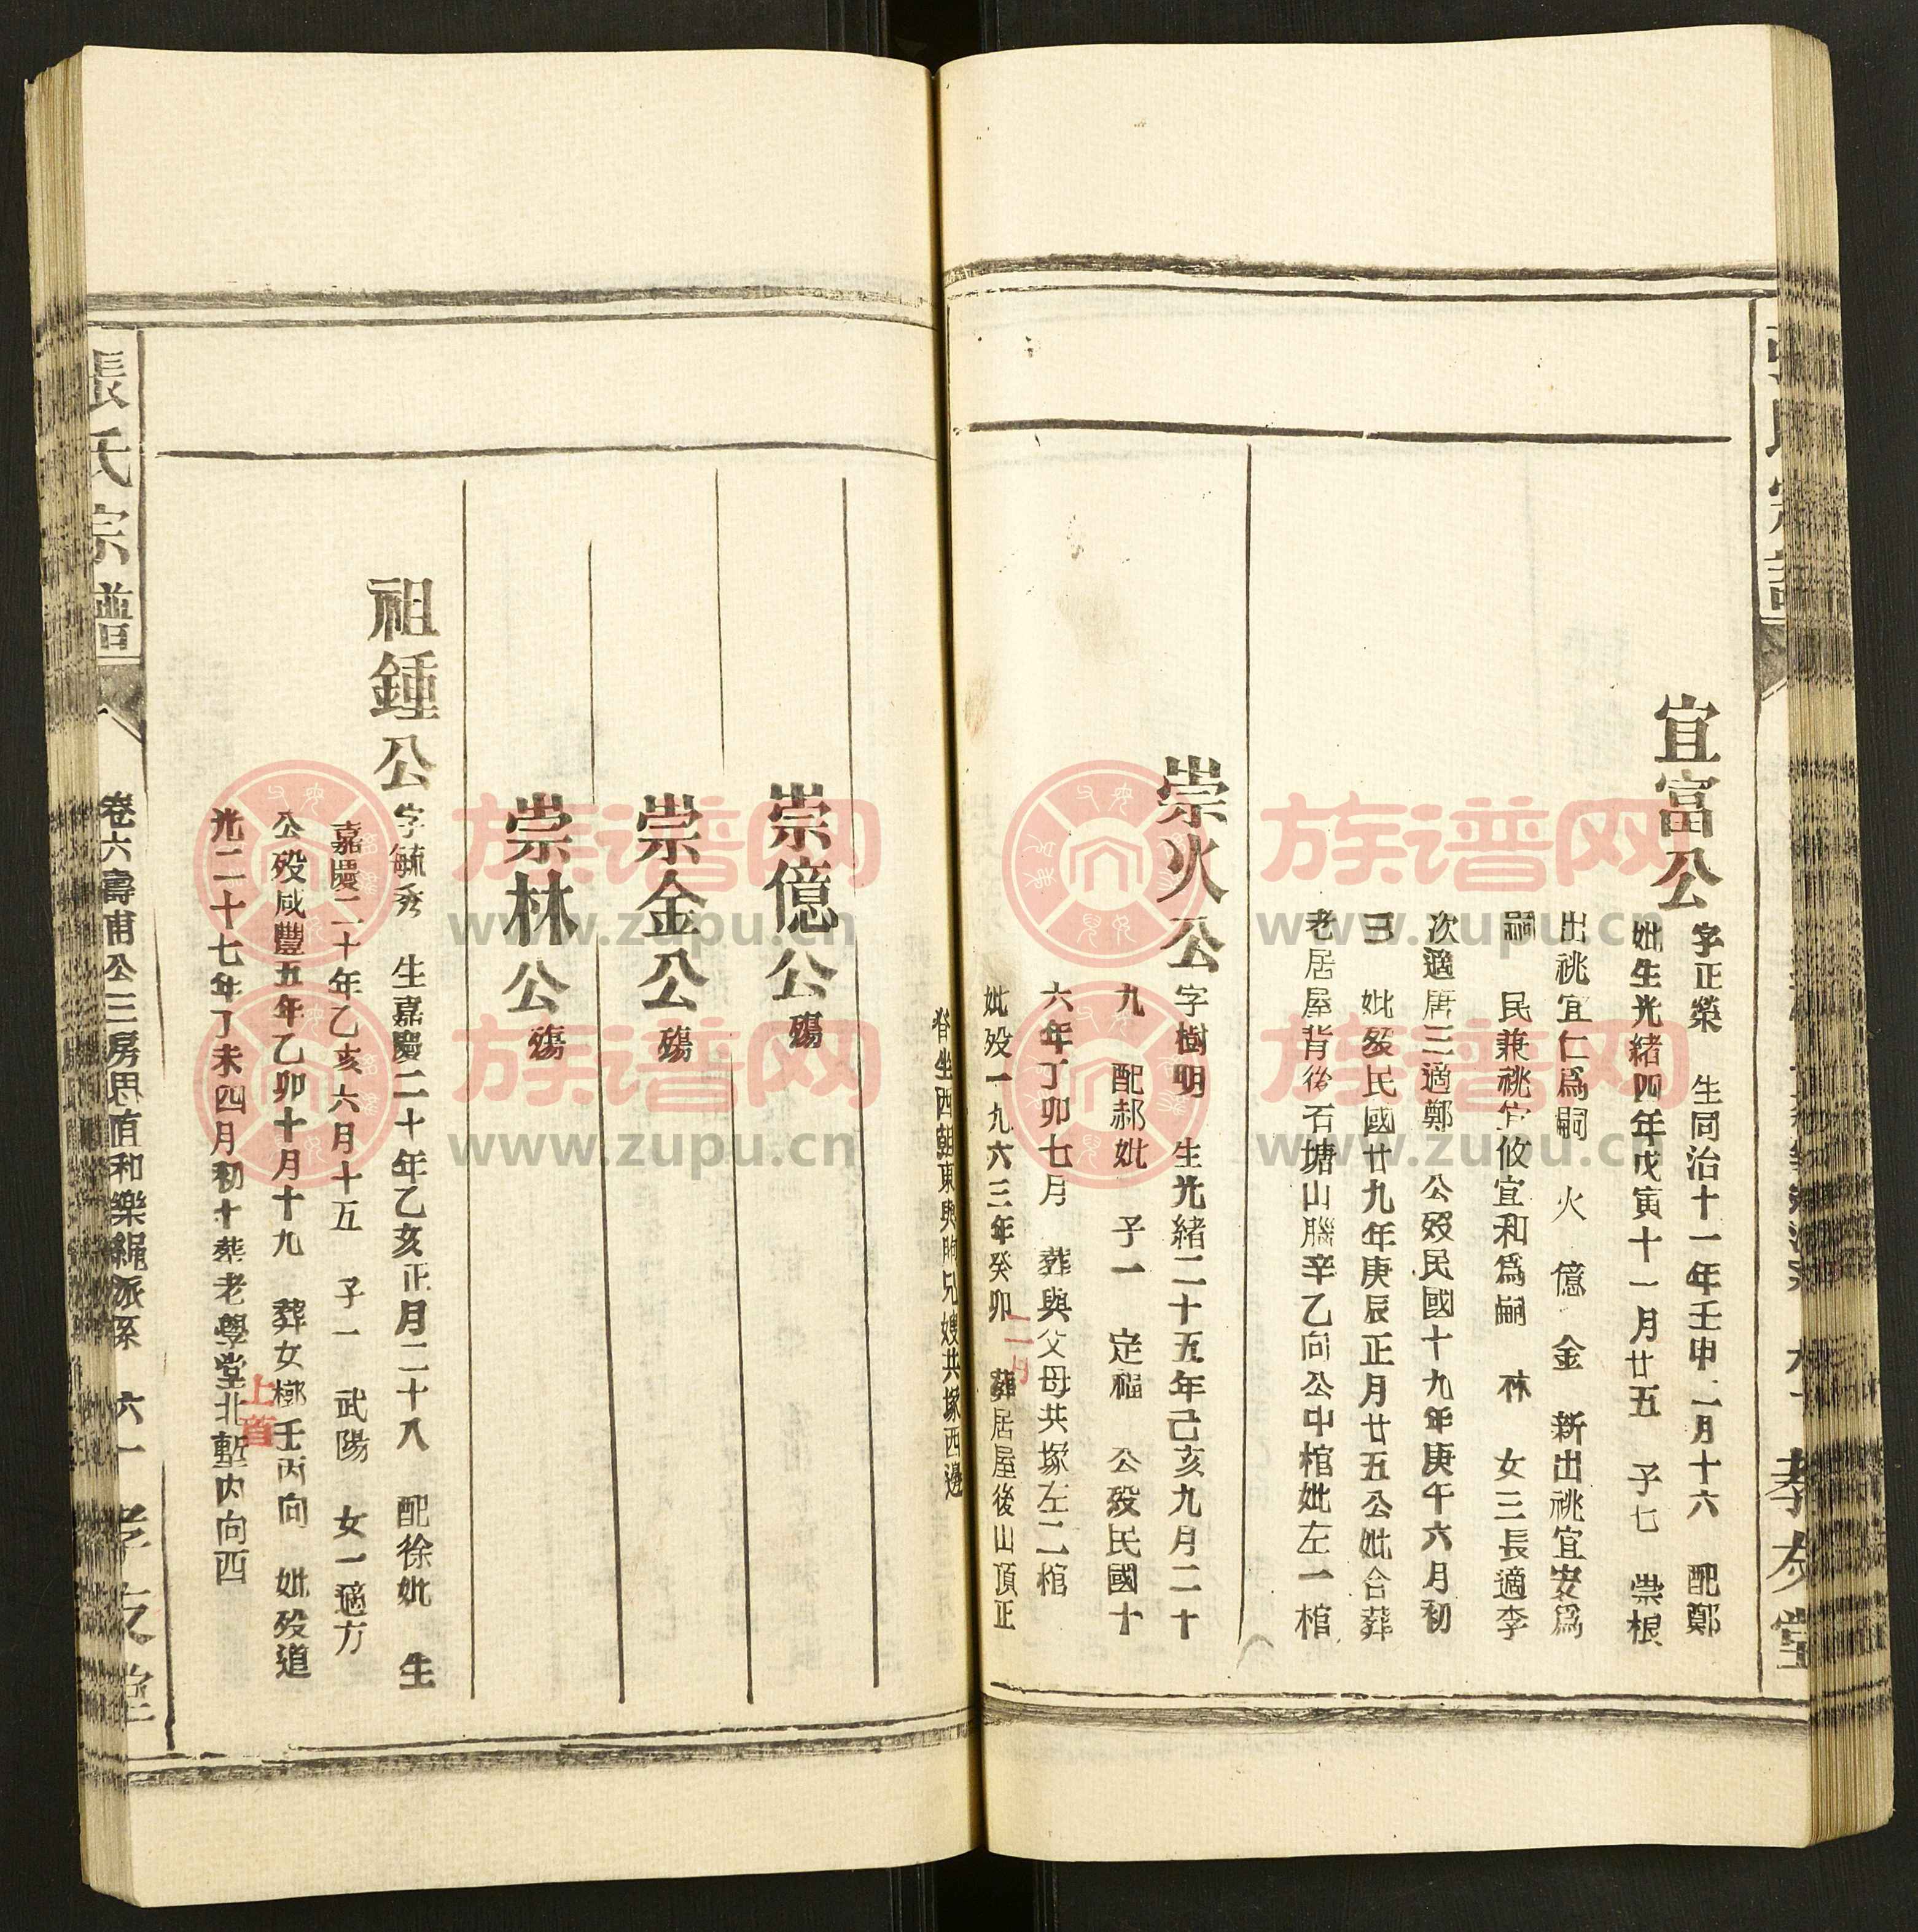 宜富公
字正榮 生同治十一年壬申二月十六 配鄭
妣生光緒四年戊寅十一月廿五 子七 崇根
出祧宜仁爲嗣 火 億 金 新出祧宜安爲
嗣 民兼祧宜攸宜和爲嗣 林 女三長適李
次適唐三適鄭 公歿民國十九年庚午六月初
三 妣歿民國廿九年庚辰正月廿五公妣合葬
老居屋背後石塘山腦辛乙向公中棺妣左一棺
崇火公
字樹明 生光緒二十五年己亥九月二十
九 配郝妣 子一 定福 公歿民國十
六年丁卯七月 葬與父母共塚左二棺
妣歿一九六三年癸卯 葬居屋後山頂正
二月
脊坐西朝東與胞兄嫂共塚西邊
崇億公 殤
崇金公 殤
崇林公 殤
祖鍾公
字毓秀 生嘉慶二十年乙亥正月二十八 配徐妣 生
嘉慶二十年乙亥六月十五 子一 武陽 女一適方
公歿咸豐五年乙卯十月十九 葬女槨壬丙向 妣歿道
上首
光二十七年丁未四月初十葬老學堂北塹內向西
張氏宗譜
卷六壽甫公三房思值和樂繩派系 六一 孝友堂
族谱网
www.zupu.cn
族谱网
www.zupu.cn
族谱网
www.zupu.cn
族谱网
www.zupu.cn